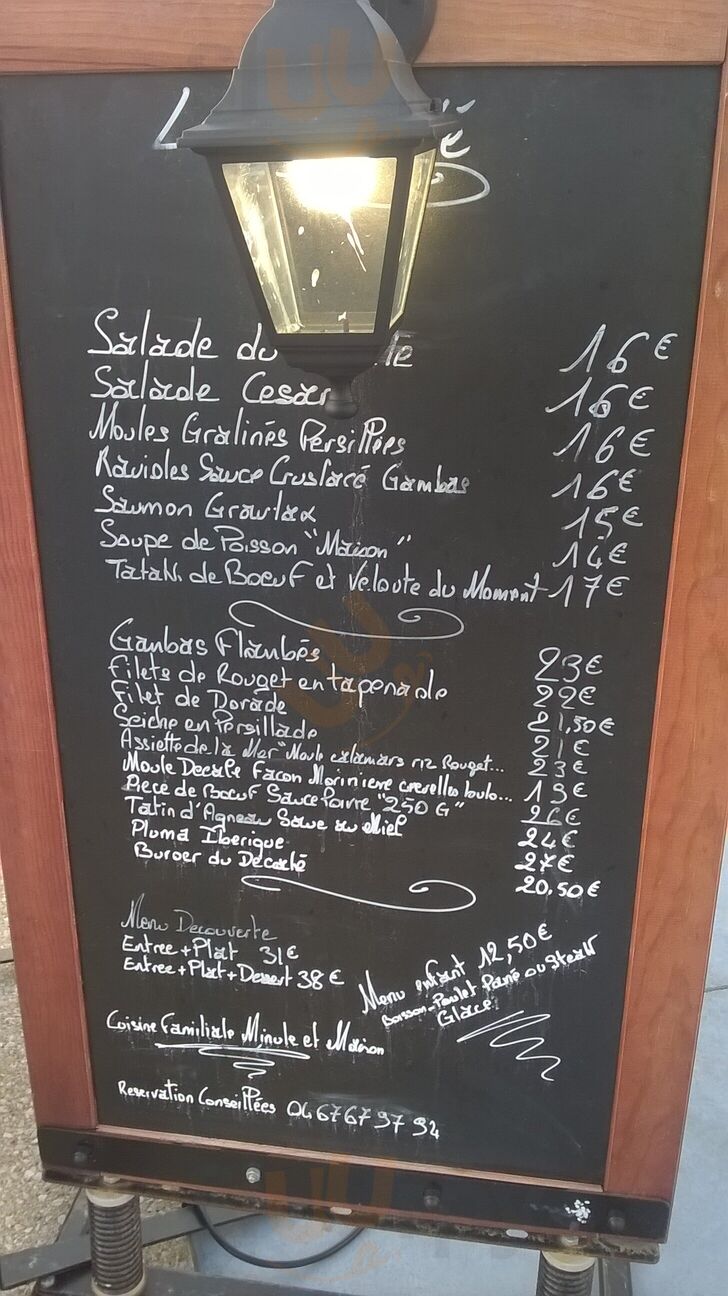 Salade du
16€
Salade Cesar
16€
Moules Gratinés Persillées
16€
Ravioles Sauce Crustacé Gambas
16€
Saumon Gravlax
15€
Soupe de Poisson "Maison"
14€
Tataki de Boeuf et Veloute du Moment
17€
Ganbas Flambés
23€
Filets de Rouget en tapenade
22€
Filet de Dorade
21,50€
Seiche en Persillade
21€
Assiette de la Mer "Moule calamars riz Rouget...
23€
Moule Decale Facon Moriniere crevettes bulo...
19€
Piece de Boeuf Sauce Poivre "250 G"
26€
Tatin d'Agneau Sauce au Miel
24€
Pluma Iberique
27€
Burger du Décalé
20,50€
Menu Decouverte
Entree+Plat 31€
Entree+Plat+Dessert 38€
Menu enfant 12,50€
Boisson-Poulet Pané ou Steak
Glace
Cuisine Familiale Minute et Maison
Reservation Conseillées 04 67 67 97 94